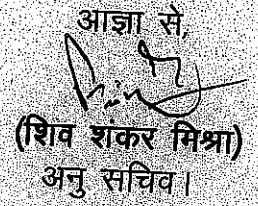 आज्ञा से,
(शिव शंकर मिश्रा)
अनु सचिव।